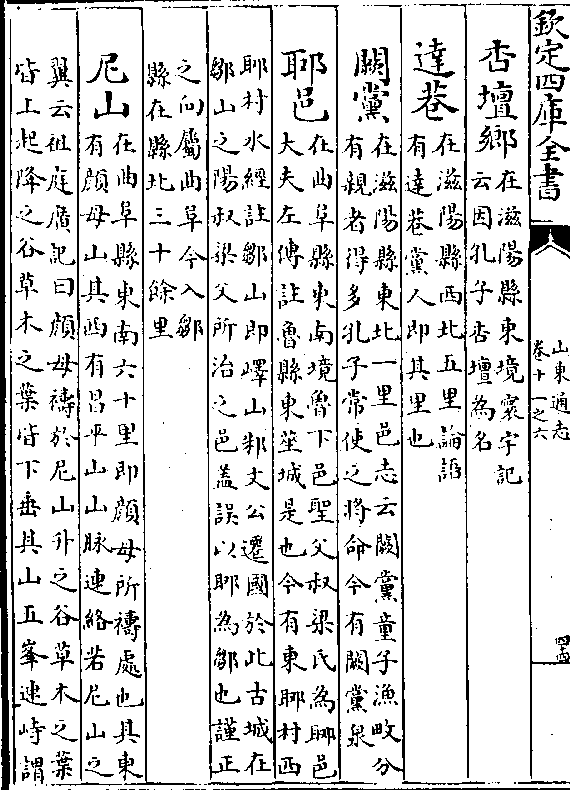 欽定四庫全書
山東通志
卷十一之六
杏壇鄉 在滋陽縣東境寰宇記
云因孔子杏壇為名
達巷 在滋陽縣西北五里論語
有達巷黨人即其里也
闕黨 在滋陽縣東北一里邑志云闕黨童子漁畋分
有親者得多孔子常使之將命今有闕黨泉
郰邑 在曲阜縣東南境魯下邑聖父叔梁氏為郰邑
大夫左傳註魯縣東莝城是也今有東郰村西
郰村水經註鄒山即嶧山邾文公遷國於此古城在
鄒山之陽叔梁父所治之邑蓋誤以郰為鄒也謹正
之向屬曲阜今入鄒
縣在縣北三十餘里
尼山 在曲阜縣東南六十里即顔母所禱處也其東
有顔母山其西有昌平山山脉連絡若尼山之
翼云祖庭廣記曰顔母禱於尼山升之谷草木之葉
皆上起降之谷草木之葉皆下垂其山五峯連峙謂